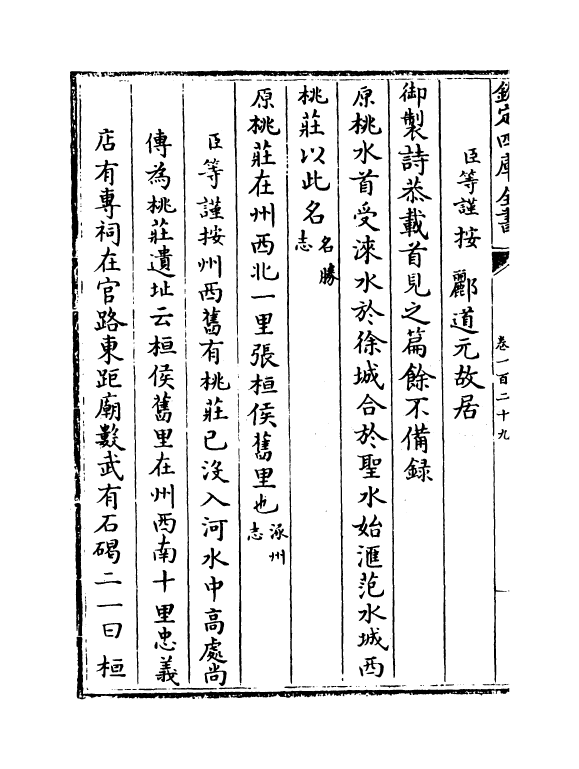 欽定四庫全書
卷一百二十九
臣等謹按酈道元故居
御製詩恭載首見之篇餘不備録
原桃水首受淶水於徐城合於聖水始滙范水城西
桃莊以此名名勝志
原桃莊在州西北一里張桓侯舊里也涿州志
臣等謹按州西舊有桃莊已没入河水中高處尚
傳為桃莊遺址云桓侯舊里在州西南十里忠義
店有專祠在官路東距廟數武有石碣二一曰桓